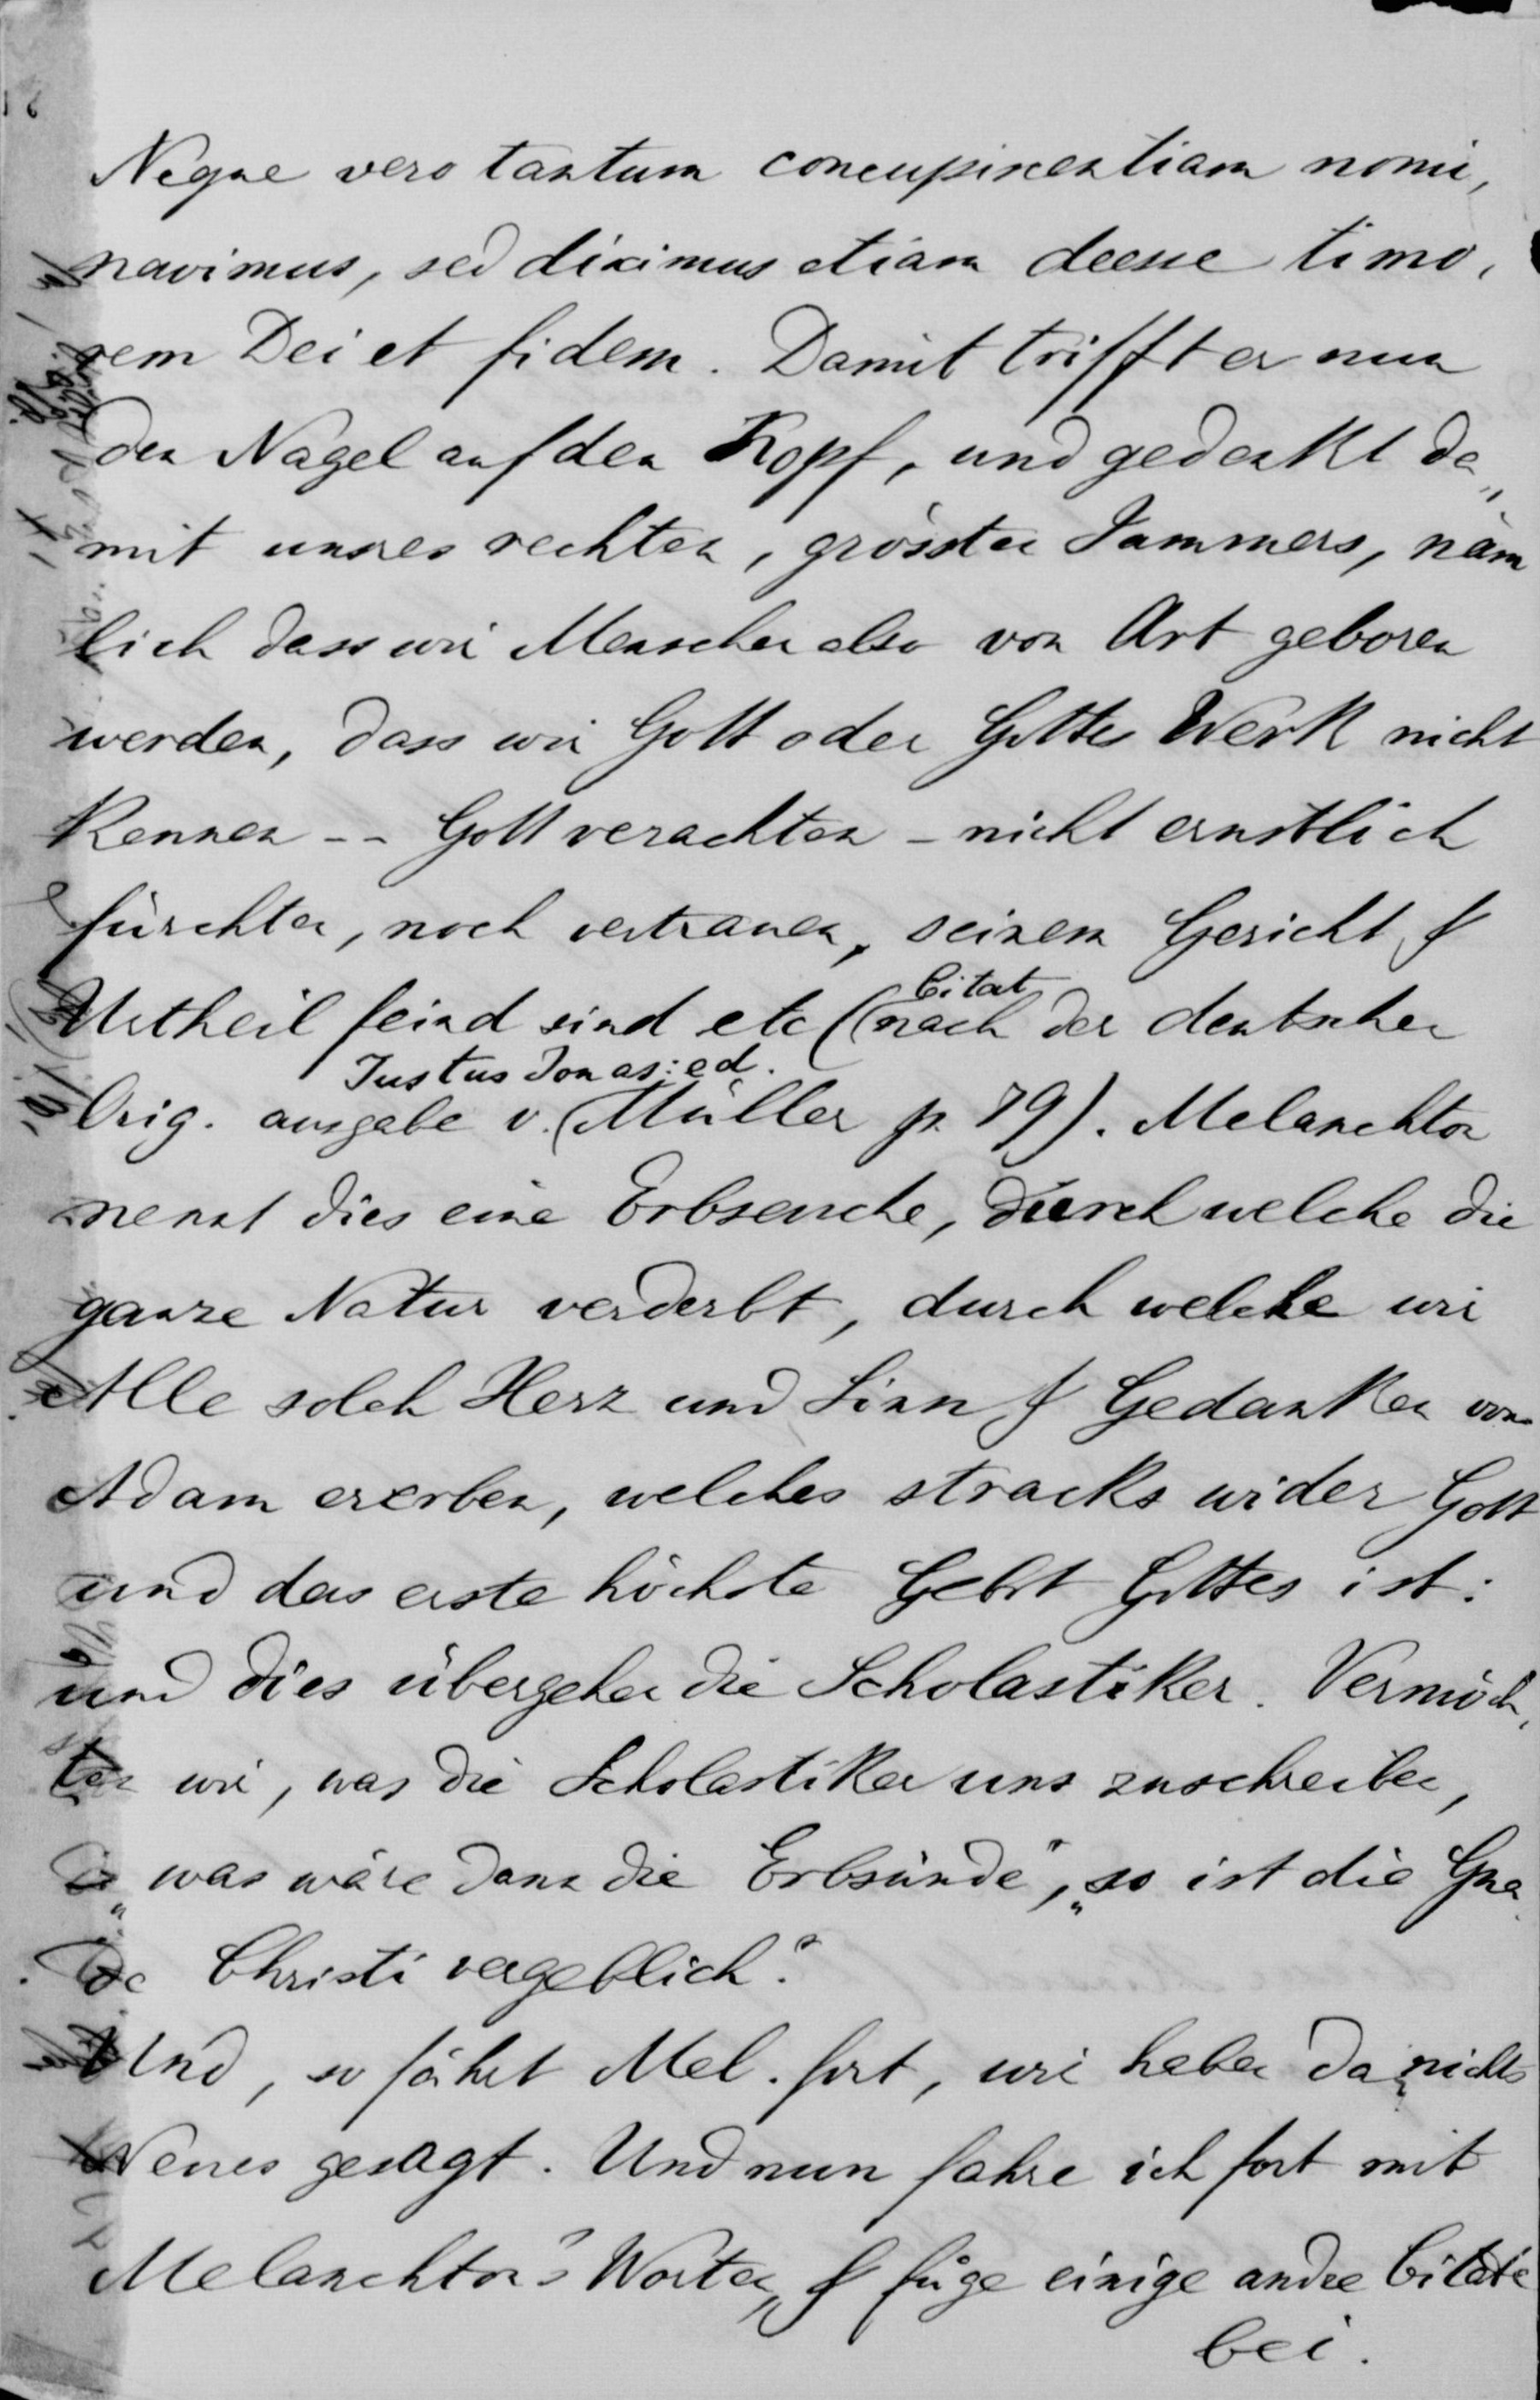 Neque vero tantum concupiscentiam nomi,
navimus, sed diximus etiam deesse timo,
rem Dei et fidem. Damit trifft er nun
den Nagel auf den Kopf, und gedenkt da„
mit unsres rechten, grössten Jammers, näm
lich dass wir Menschen also von Art geboren
werden, dass wir Gott oder Gottes Werk nicht
kennen -- Gott verachten - nicht ernstlich
fürchten, noch vertrauen, seinem Gericht &
Citat
Urtheil feind sind etc (nach der deutschen
Justus Jonas: ed.
Orig. ausgabe v. (Müller p. 79). Melanchton
nennt dies eine Erbseuche, durch welche die
ganze Natur verderbt, durch welche wir
Alle solch Herz und Sinn & Gedanken von
Adam ererben, welches stracks wider Gott
und das erste höchste Gebot Gottes ist:
und dies übergehen die Scholastiker. Vermöch,
ten wir, was die Scholastiker uns zuschreiben,
„was wäre dann die Erbsünde", „so ist die Gna
de Christi vergeblich".
Und, so fährt Mel. fort, wir haben da nichts
Neues gesagt. Und nun fahre ich fort mit
Melanchton's Worten, & füge einige andre Citate
bei.